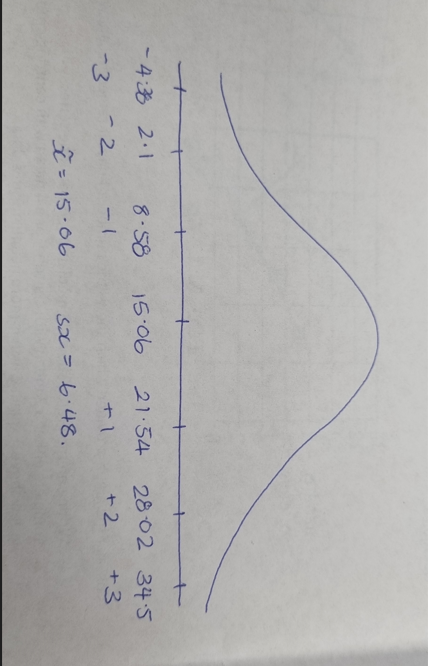 -4.38 2.1 8.58 15.06 21.54 28.02 34.5
-3 -2 -1 +1 +2 +3
x̄ = 15.06 sx = 6.48.